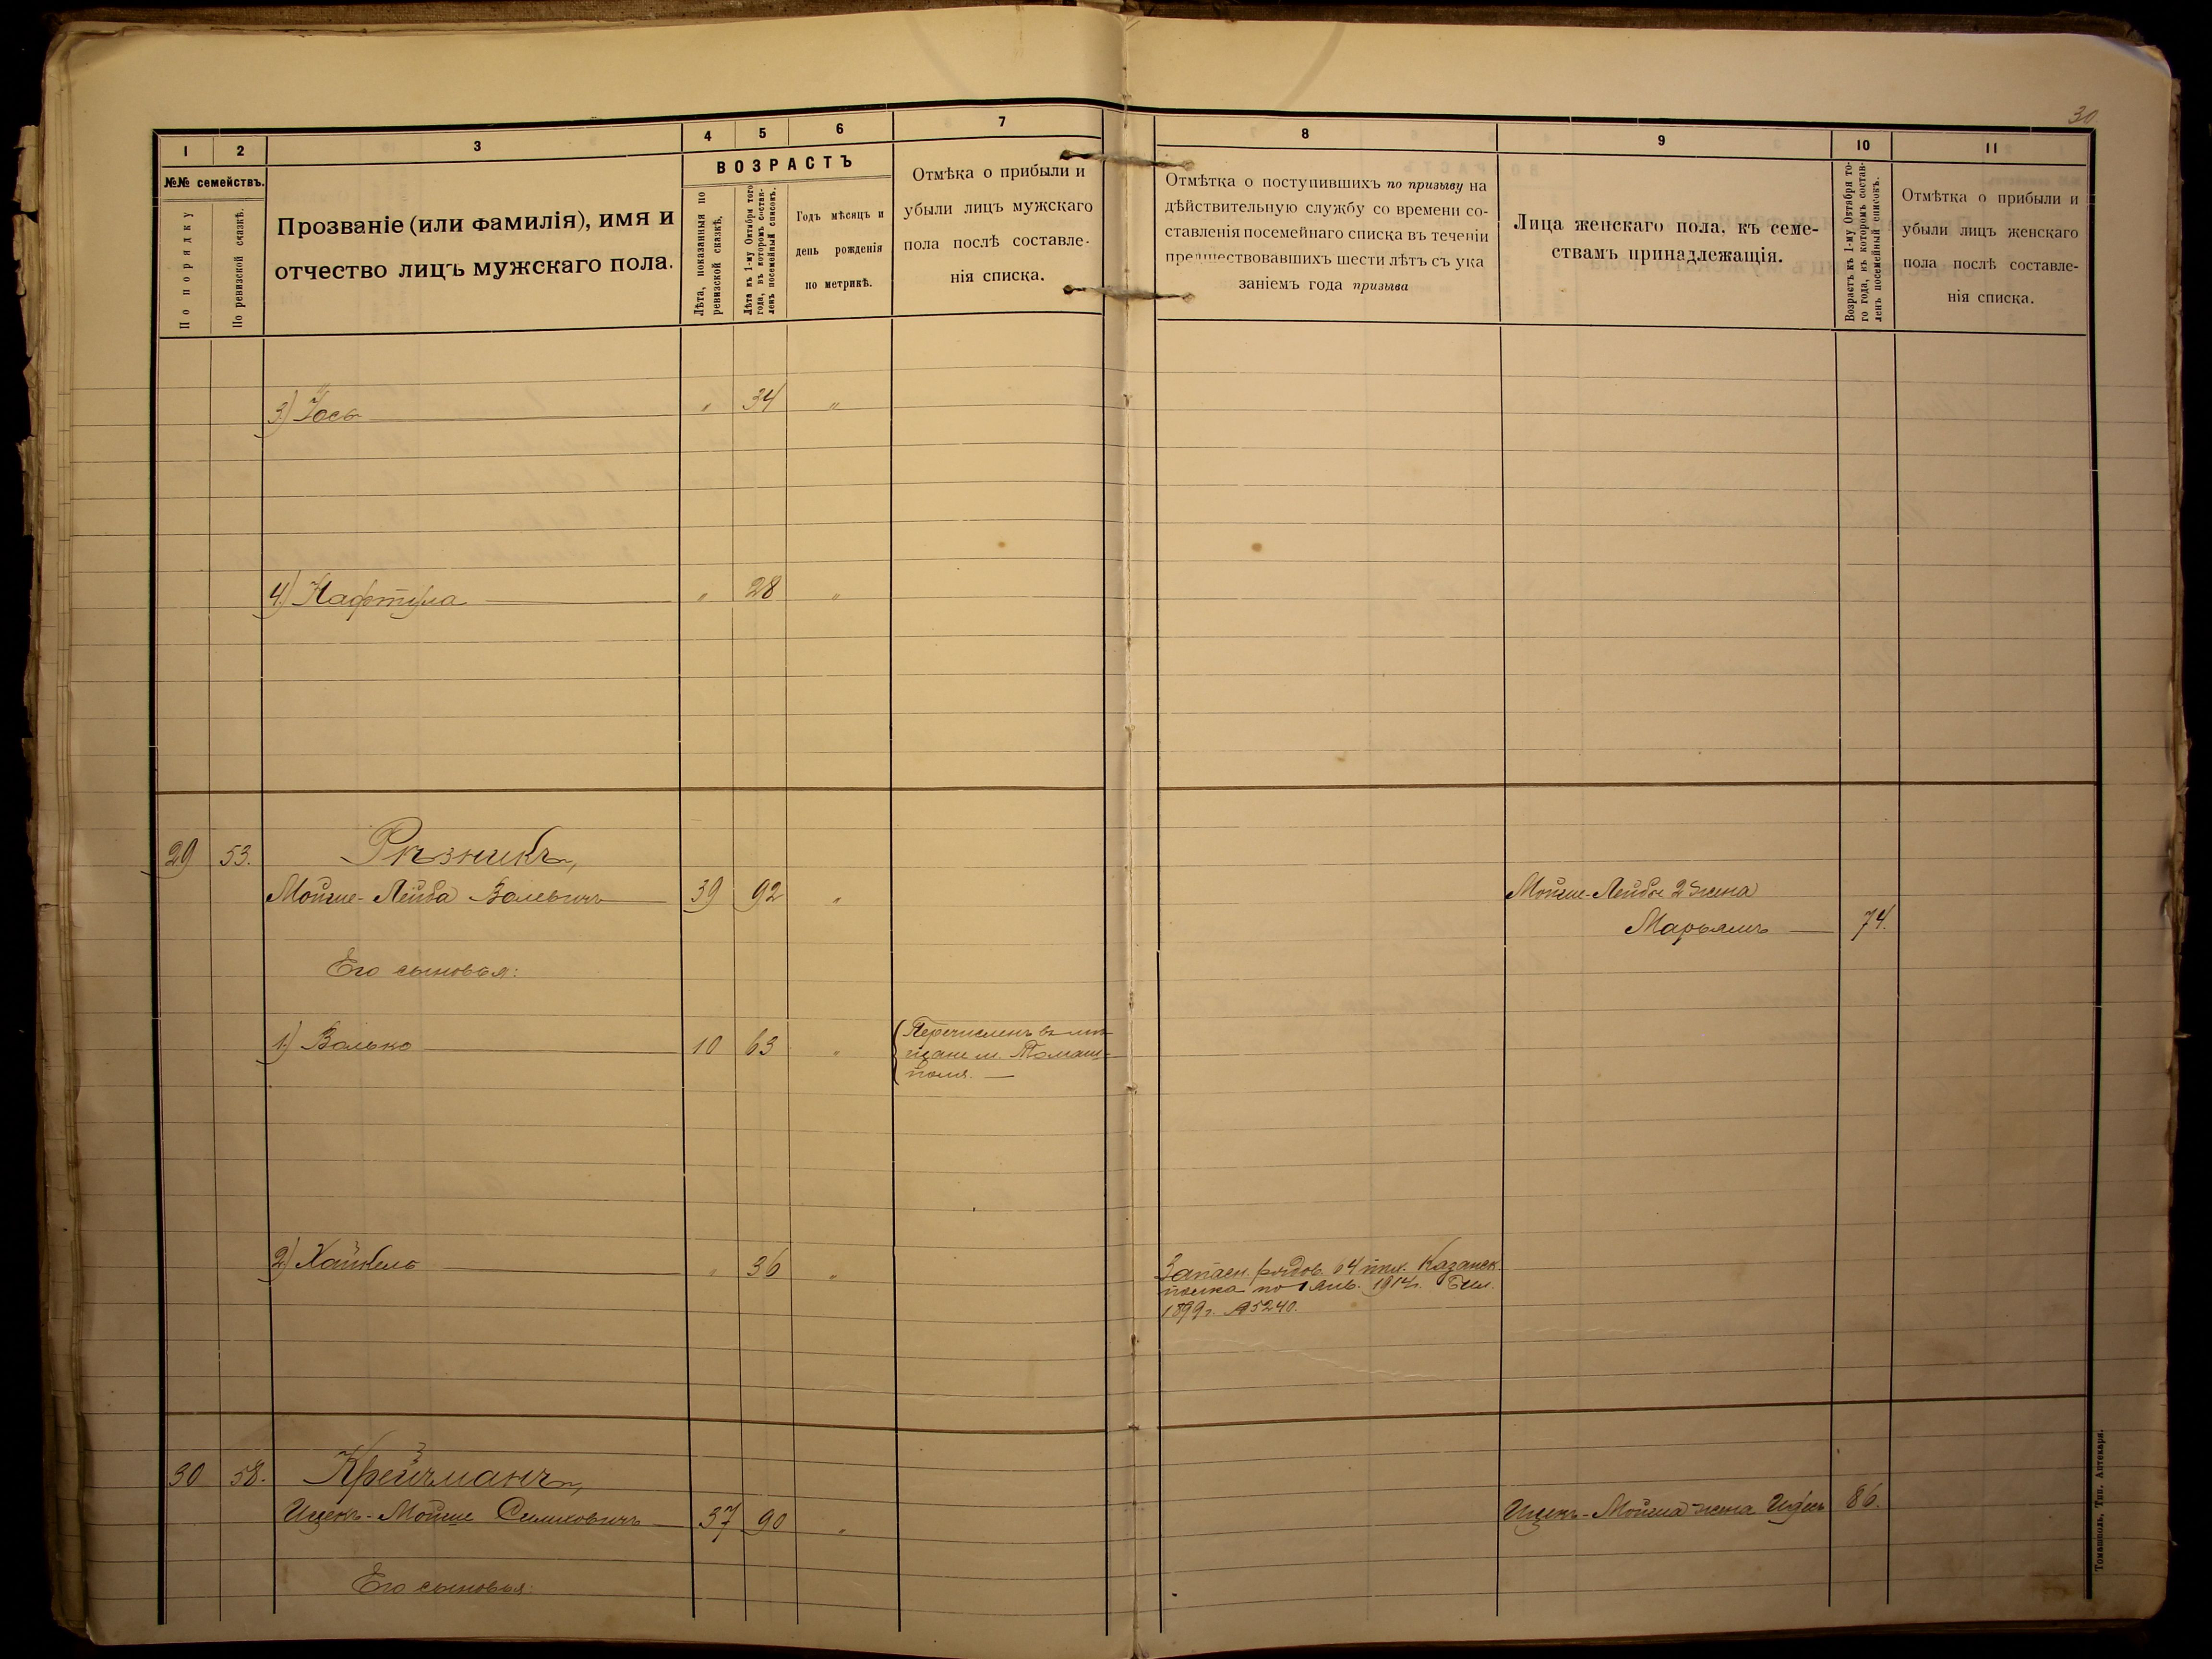 30
1 2 3 4 5 6 7 8 9 10 11
№№ семействъ.
По порядку
По ревизской сказкѣ.
Прозваніе (или фамилія), имя и
отчество лицъ мужскаго пола.
ВОЗРАСТЪ
Лѣта, показанныя по
ревизской сказкѣ,
Лѣта къ 1-му Октября того
года, въ которомъ состав-
ленъ посемейный списокъ.
Годъ мѣсяцъ и
день рожденія
по метрикѣ.
Отмѣка о прибыли и
убыли лицъ мужскаго
пола послѣ составле-
нія списка.
Отмѣтка о поступившихъ по призыву на
дѣйствительную службу со времени со-
ставленія посемейнаго списка въ теченіи
предшествовавшихъ шести лѣтъ съ ука
заніемъ года призыва
Лица женскаго пола, къ семе-
ствамъ принадлежащія.
Возрастъ къ 1-му Октября то-
го года, въ которомъ состав-
ленъ посемейный списокъ.
Отмѣтка о прибыли и
убыли лицъ женскаго
пола послѣ составле-
нія списка.
3) Іось " 34 "
4) Нафтула " 28 "
29 53. Рѣзникъ,
Мойше-Лейба Волевичъ 39 92 " Мойше-Лейбы 2 жена
Марьямъ 74.
Его сыновья:
1) Волько 10 63 "
Перечисленъ въ мѣ-
щане м. Томаш-
поля.
2) Хайкель " 36 "
Запасн. рядов. 64 пѣх. Казанск.
полка по 1 Янв. 1914г. Бил.
1899г. №5240.
30 58. Крейчманъ,
Ицекъ-Мойше Симховичъ 37 90 " Ицекъ-Мойша жена 86.
Его сыновья:
Томашполь, Тип. Аптекаря.